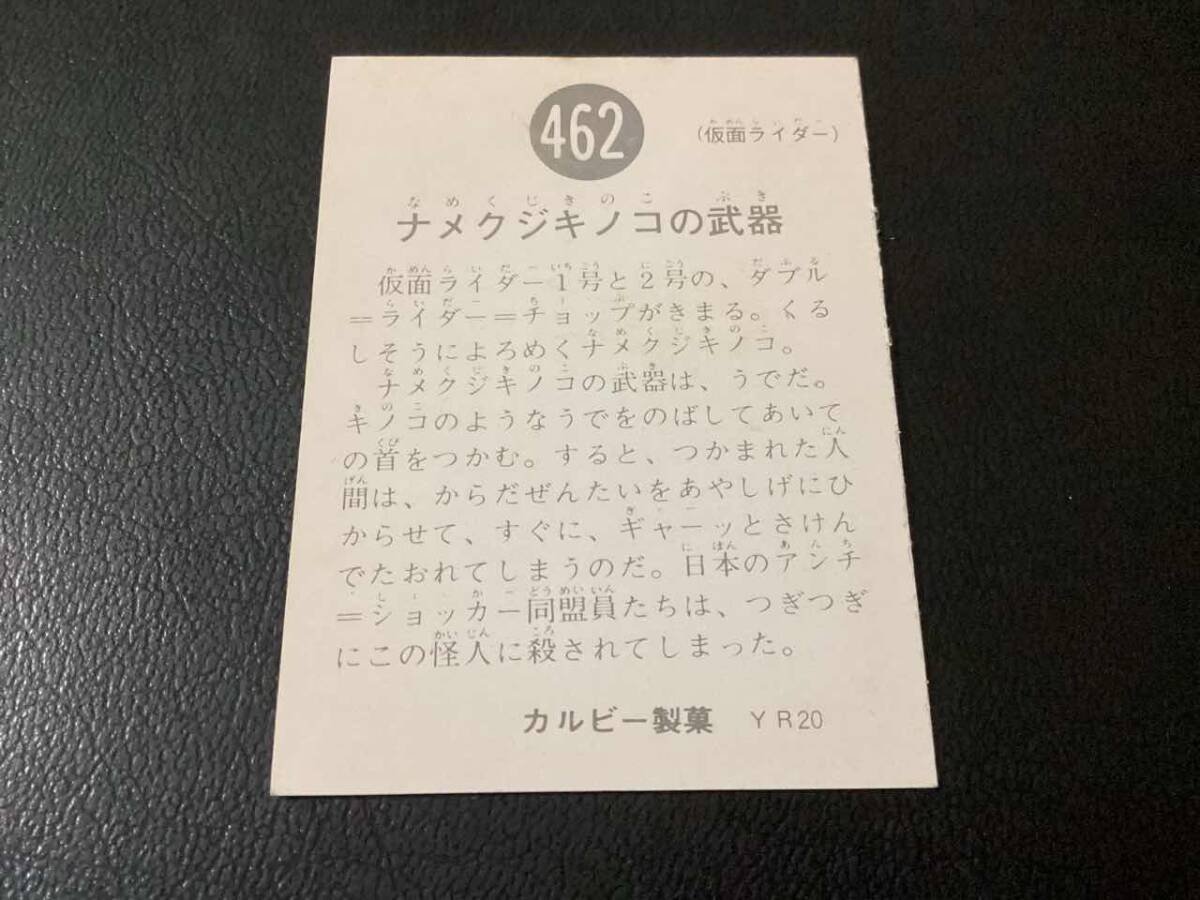 462
(仮面ライダー)
ナメクジキノコの武器
仮面ライダー1号と2号の、ダブル
=ライダー=チョップがきまる。くる
しそうによろめくナメクジキノコ。
ナメクジキノコの武器は、うでだ。
キノコのようなうでをのばしてあいて
の首をつかむ。すると、つかまれた人
間は、からだぜんたいをあやしげにひ
からせて、すぐに、ギャーッとさけん
でたおれてしまうのだ。日本のアンチ
=ショッカー同盟員たちは、つぎつぎ
にこの怪人に殺されてしまった。
カルビー製菓 YR20